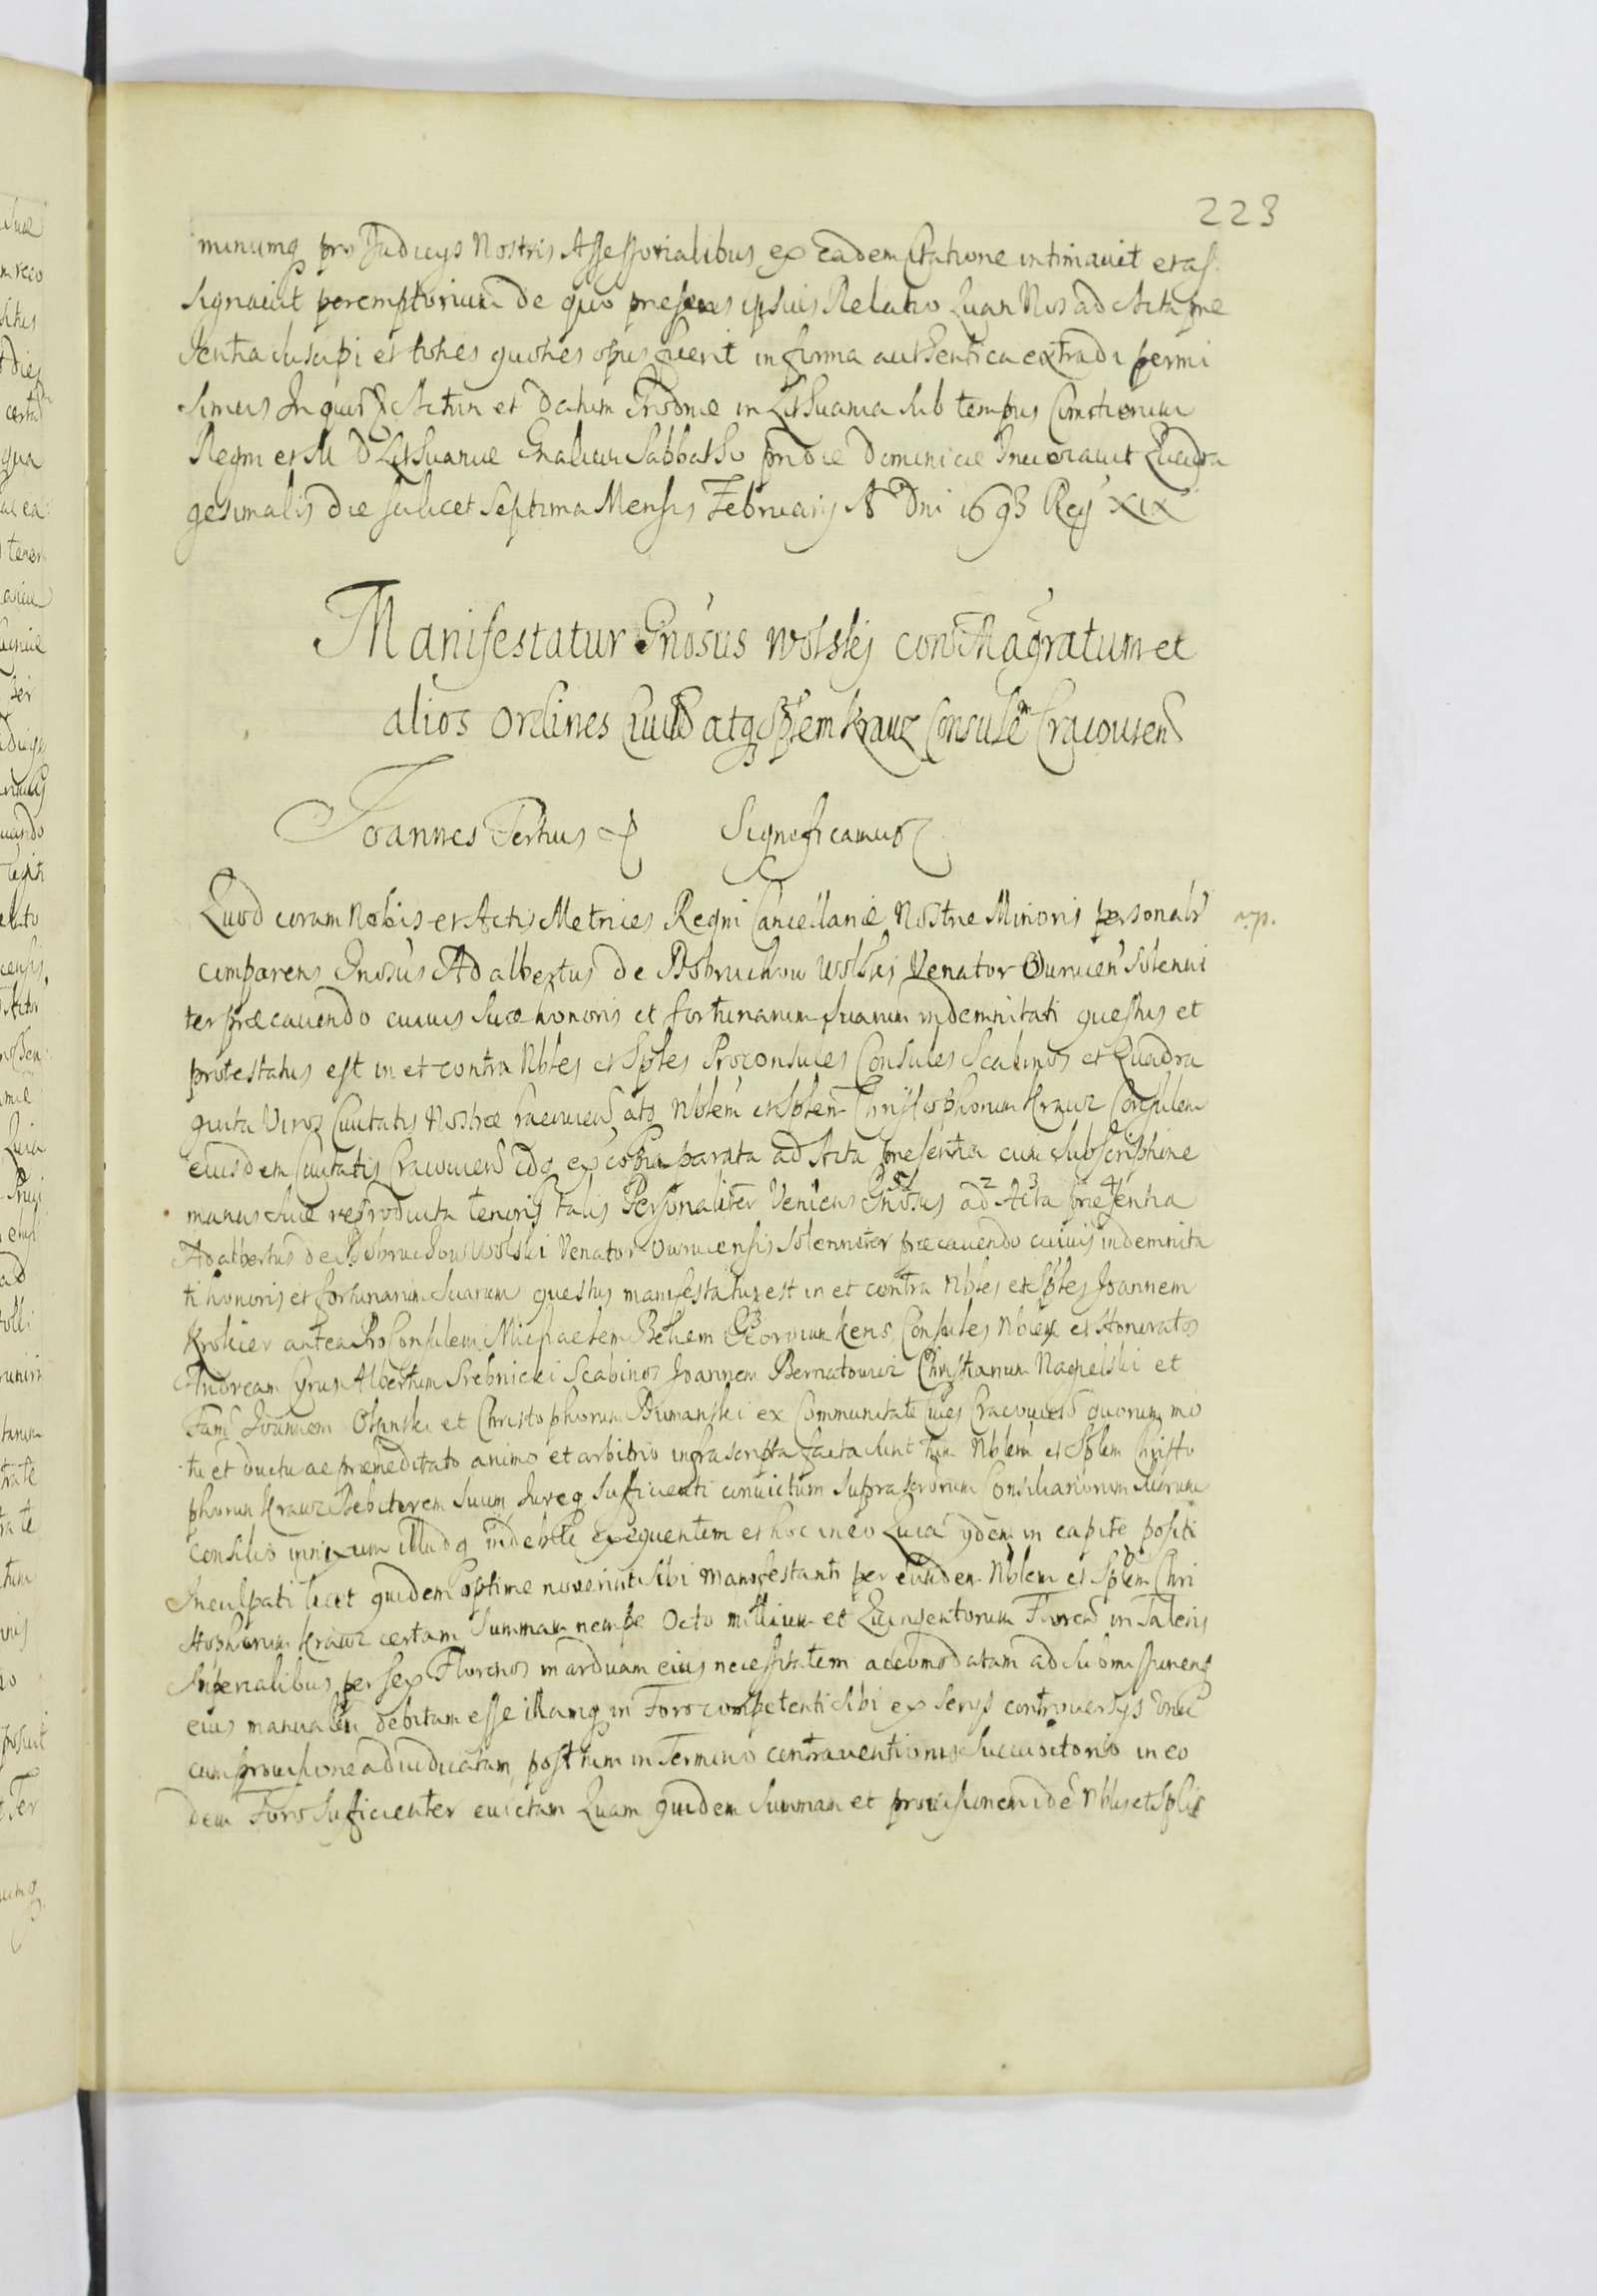 223
minumq pro Judicys Nostris Assessorialibus ex eadem Citatione intimavit et as
signavit peremptorium de quo presens ipsius Relatio Quam Nos ad Acta pre
sentia suscipi et toties quoties opus fuerit in forma authentica extradi permi
simus In quor Actum et Datum Grodnæ in Lithuania sub tempus Comitiorum
Regni et M D Lithuaniæ Gnalium Sabbatho pridie Dominicæ Invocavit Quadra
gesimalis die scilicet Septima Mensis February A Dni 1693 Rgi XIX
Manifestatur Gnosus Wolskj con Magratum et
alios ordines Civit atq Splem Krauz Consulem Cracovien
Joannes Tertius Significamus
Quod coram Nobis et Actis Metrices Regni Cancellariæ Nostræ Minoris personalr
comparens Gnosus Adalbertus de Wolski Venator Owrucen Solenni
ter præcavendo cuivis suæ honoris et fortunarum suarum indemnitati questus et
protestatus est in et contra Nbles et Sples Proconsules Consules Scabinos et Quadra
ginta Viros Civitatis Nostræ Cracovien atq Nblem et Splem Christophorum Krauz Consulem
eiusdem Civitatis Cracovien idq ex copia parata ad Acta presentia cum subscriptione
manus suæ reproducta tenoris talis Personaliter Veniens Gnosus ad Acta præsentia
Adalbertus de Wolski Venator Owrucensis Solenniter præcavendo cuivis indemnita
ti honoris et fortunarum suarum questus manifestatus est in et contra Nbles et Sples Joannem
Krokier antea ProConsulem Michaelem Behem Georgium Kens Consules Nbles et Honoratos
Andream Cyrus Albertum Srebnicki Scabinos Joannem Bernatowicz Christianum Nagielski et
Fam Joannem et Christophorum Rumanski ex Communitate Cives Cracovien quorum mo
tu et ductu ac præmeditato animo et arbitrio infrascripta facta sunt tum Nblem et Splem Christo
phorum Krauz Debitorem suum Jureq sufficienti convictum suprascrorum Consiliariorum suorum
consilio innixum illudq indebite exequentem et hoc in eo Quia ydem in capite positi
Inculpati licet quidem optime noverint sibi Manifestanti per eundem Nblem et Splem Chri
stophorum Krauz certam Summam nempe Octo millium et Quingentorum Floren in Taleris
Imperialibus per sex Florenos in arduam eius necessitatem accomodatam ad submissionem
eius manualem debitam esse illamq in Foro competenti sibi ex serys controversys
cum provisione adiudicatam, post tum in Termino contraventionis Succusitorio in eo
dem Foro sufficienter evictam Quam quidem summam et provisionem idem Nblis et Splis